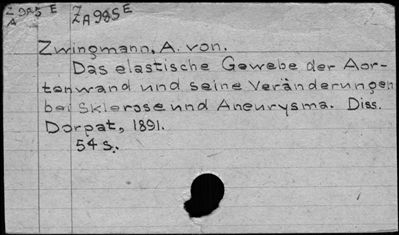 Z 985 E
A
ZA985E
Zwingmann, A. von.
Das elastische Gewebe der Aor-
tenwand und seine Veränderungen
bei Sklerose und Aneurysma. Diss.
Dorpat, 1891.
54 s.